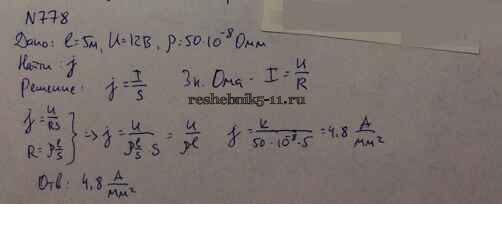 N778
Дано: l=5м, U=12В, ρ=50·10⁻⁸Омм
Найти: j
Решение: j=I/S Зк. Ома - I=U/R
reshebnik5-11.ru
j=U/RS
R=ρl/S } => j=U/(ρ l/S S) = U/ρl j=U/(50·10⁻⁸·5)=4.8 А/мм²
Отв: 4.8 А/мм²